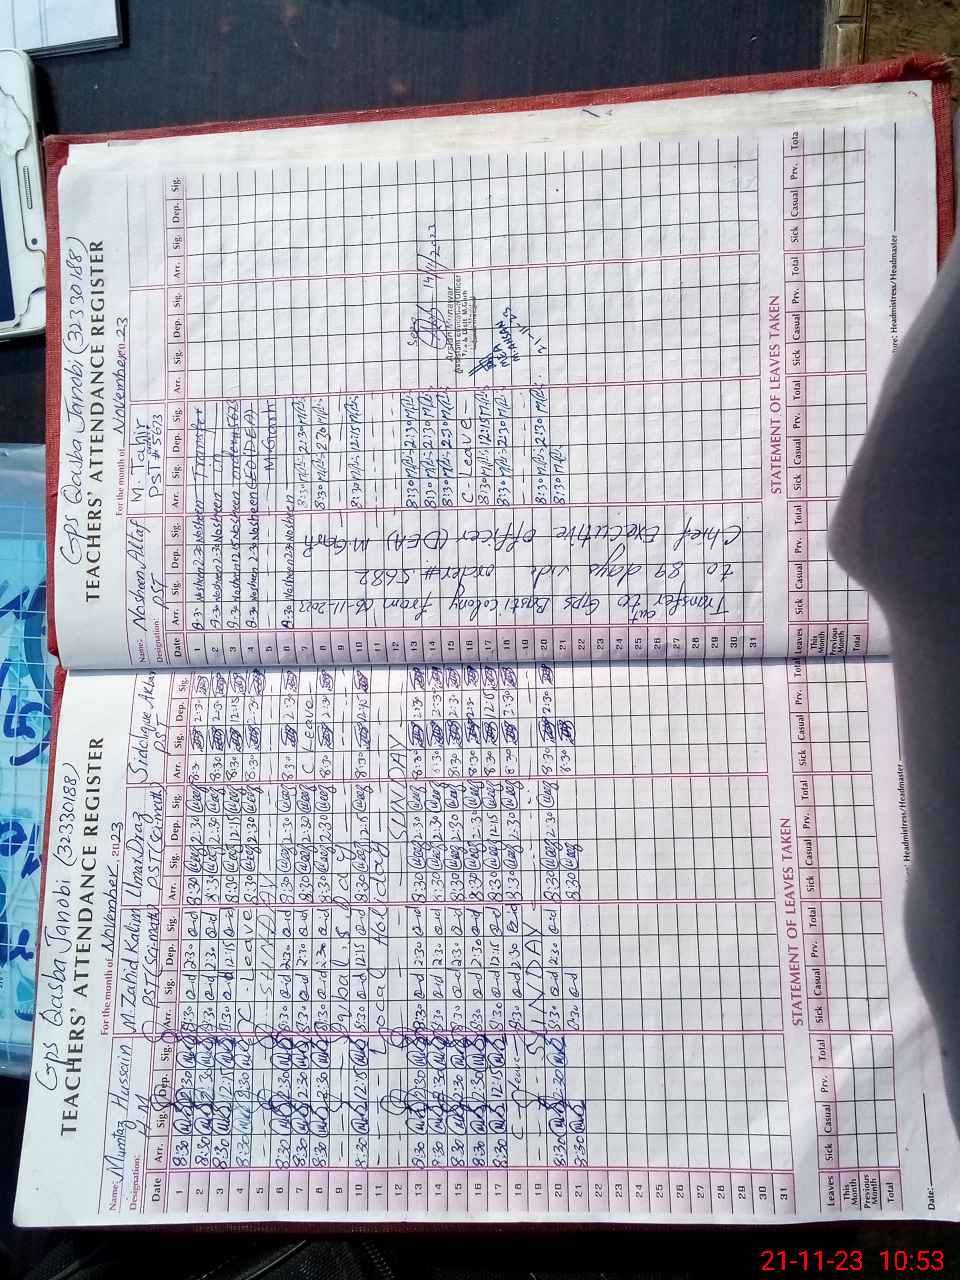 Gps Qasba Janobi (32330188)
TEACHERS' ATTENDANCE REGISTER
For the month of November, 2023
Name: Mumtaz Hussain M. Zahid Kalim Umar Daraz Siddique Akbar
Designation: PST (Sci-math) PST (Sci-math) PST
Date Arr. Sig. Dep. Sig. Arr. Sig. Dep. Sig. Arr. Sig. Dep. Sig. Arr. Sig. Dep. Sig.
1 8:30 2:30 8:30 2:30 8:30 2:30 8:30 2:30
2 8:30 2:30 8:30 2:30 8:30 2:30 8:30 2:30
3 8:30 12:15 8:30 12:15 8:30 12:15 8:30 12:15
4 8:30 2:30 C - Leave 8:30 2:30 8:30 2:30
5 SUNDAY
6 8:30 2:30 8:30 2:30 8:30 2:30 8:30 2:30
7 8:30 2:30 8:30 2:30 8:30 2:30 C Leave
8 8:30 2:30 8:30 2:30 8:30 2:30 8:30 2:30
9 Iqbal's Day
10 8:30 12:15 8:30 12:15 8:30 12:15 8:30 12:15
11 Local Holiday
12 SUNDAY
13 8:30 2:30 8:30 2:30 8:30 2:30 8:30 2:30
14 8:30 2:30 8:30 2:30 8:30 2:30 8:30 2:30
15 8:30 2:30 8:30 2:30 8:30 2:30 8:30 2:30
16 8:30 2:30 8:30 2:30 8:30 2:30 8:30 2:30
17 8:30 12:15 8:30 12:15 8:30 12:15 8:30 12:15
18 C - Leave 8:30 2:30 8:30 2:30 8:30 2:30
19 SUNDAY
20 8:30 2:30 8:30 2:30 8:30 2:30 8:30 2:30
21 8:30 8:30 8:30 8:30
22
23
24
25
26
27
28
29
30
31
STATEMENT OF LEAVES TAKEN
Leaves Sick Casual Prv. Total Sick Casual Prv. Total Sick Casual Prv. Total Sick Casual Prv. Total
This Month
Previous Month
Total
Date:
Headmistress/Headmaster
Gps Qasba Janobi (32330188)
TEACHERS' ATTENDANCE REGISTER
For the month of November 2023
Name: Nosheen Altaf M. Tahir
Designation: PST PST # 5673
Date Arr. Sig. Dep. Sig. Arr. Sig. Dep. Sig. Arr. Sig. Dep. Sig. Arr. Sig. Dep. Sig.
1 8:30 Nosheen 2:30 Nosheen Transfer
2 8:30 Nosheen 2:30 Nosheen in
3 8:30 Nosheen 12:15 Nosheen order # 5673
4 8:30 Nosheen 2:30 Nosheen CEO (DEA)
5 M.Garh
6 8:30 Nosheen 2:30 Nosheen
7 8:30 2:30
8 8:30 2:30
9
10 8:30 12:15
11
12
13 8:30 2:30
14 8:30 2:30 14/11/2023
15 8:30 2:30
16 C - Leave
17 8:30 12:15
18 8:30 2:30
19
20 8:30 2:30
21 8:30
22
23
24
25
26
27
28
29
30
31
Transfer out to Gps Basti colony from 06-11-2023
to 89 days vide order # 5682
Chief Executive Officer (DEA) M.Garh
Seen
Assistant Education Officer
STATEMENT OF LEAVES TAKEN
Leaves Sick Casual Prv. Total Sick Casual Prv. Total Sick Casual Prv. Total Sick Casual Prv. Tota
This Month
Previous Month
Total
Headmistress/Headmaster
21-11-23 10:53